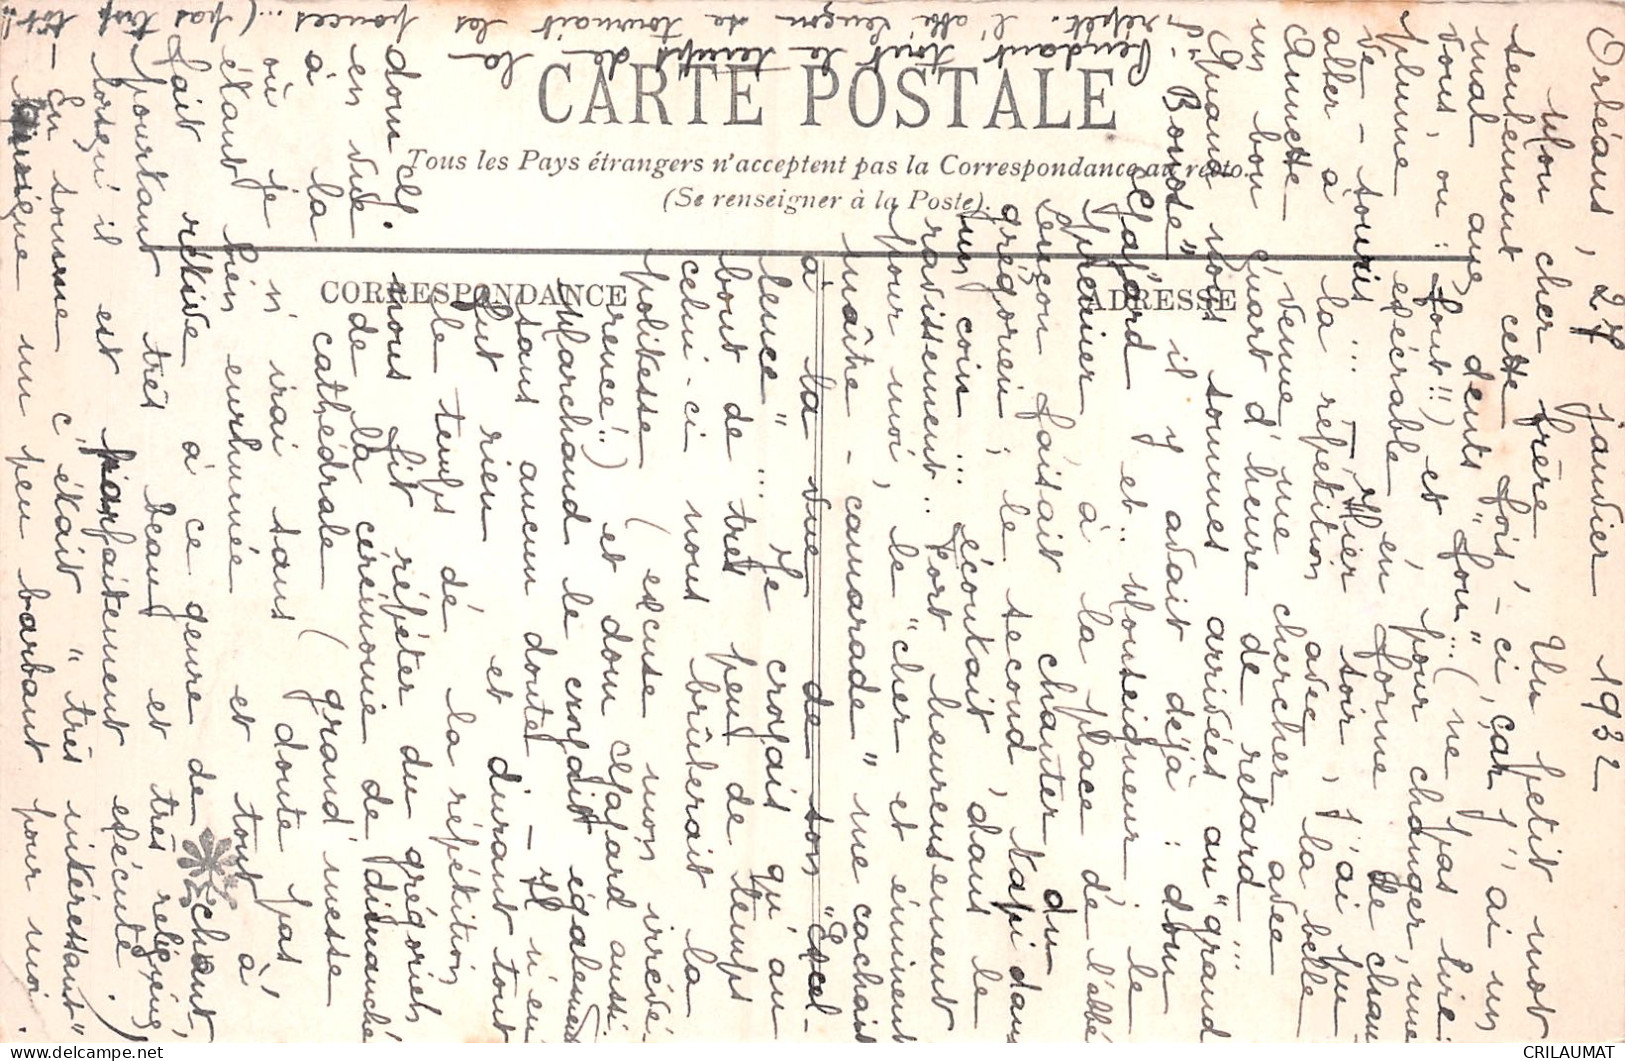 Orléans, 27 janvier 1932
Mon cher frère, Un petit mot
seulement cette fois-ci, car j'ai un
mal aux dents "fou"... (ne pas lire
vous, ou: font!!) et pour changer, une
plume exécrable en forme de chau-
ve-souris... — Hier soir, j'ai pu
aller à la répétition avec la belle
Annette venue me chercher avec
un bon quart d'heure de retard...
Quand nous sommes arrivées au "grand
"Bourdé" il y avait déjà: dom
Gajard et.. Monseigneur; le
premier à la place de l'abbé
Lençon faisait chanter du
grégorien; le second, tapi dans
un coin... écoutait, dans le
ravissement.. Fort heureusement
pour moi, le "cher et éminent
maître-camarade" me cachait
à la vue de son "Excel-
lence"... Je croyais qu'au
bout de très peu de temps
celui-ci nous brûlerait la
politesse (excuse mon irrévé-
rence!!) et dom Gajard aussi.
Marchand le croyait également
sans aucun doute — Il n'en
fut rien et durant tout
le temps de la répétition
nous fit répéter du grégorien
de la cérémonie de dimanche
cathédrale (grand'messe
où je n'irai sans doute pas,
étant bien enrhumée et tout à
fait rétive à ce genre de chant,
pourtant très beau et très religieux,
lorsqu'il est parfaitement exécuté.)
— En somme c'était "très intéressant"
un peu barbant pour moi.
dom G.
en vue
à la
Pendant tout le temps de la
répét. l'abbé Lençon se tournait les pouces... (pas trop tôt!!
CARTE POSTALE
Tous les Pays étrangers n'acceptent pas la Correspondance au recto.
(Se renseigner à la Poste).
CORRESPONDANCE
ADRESSE
CRILAUMAT